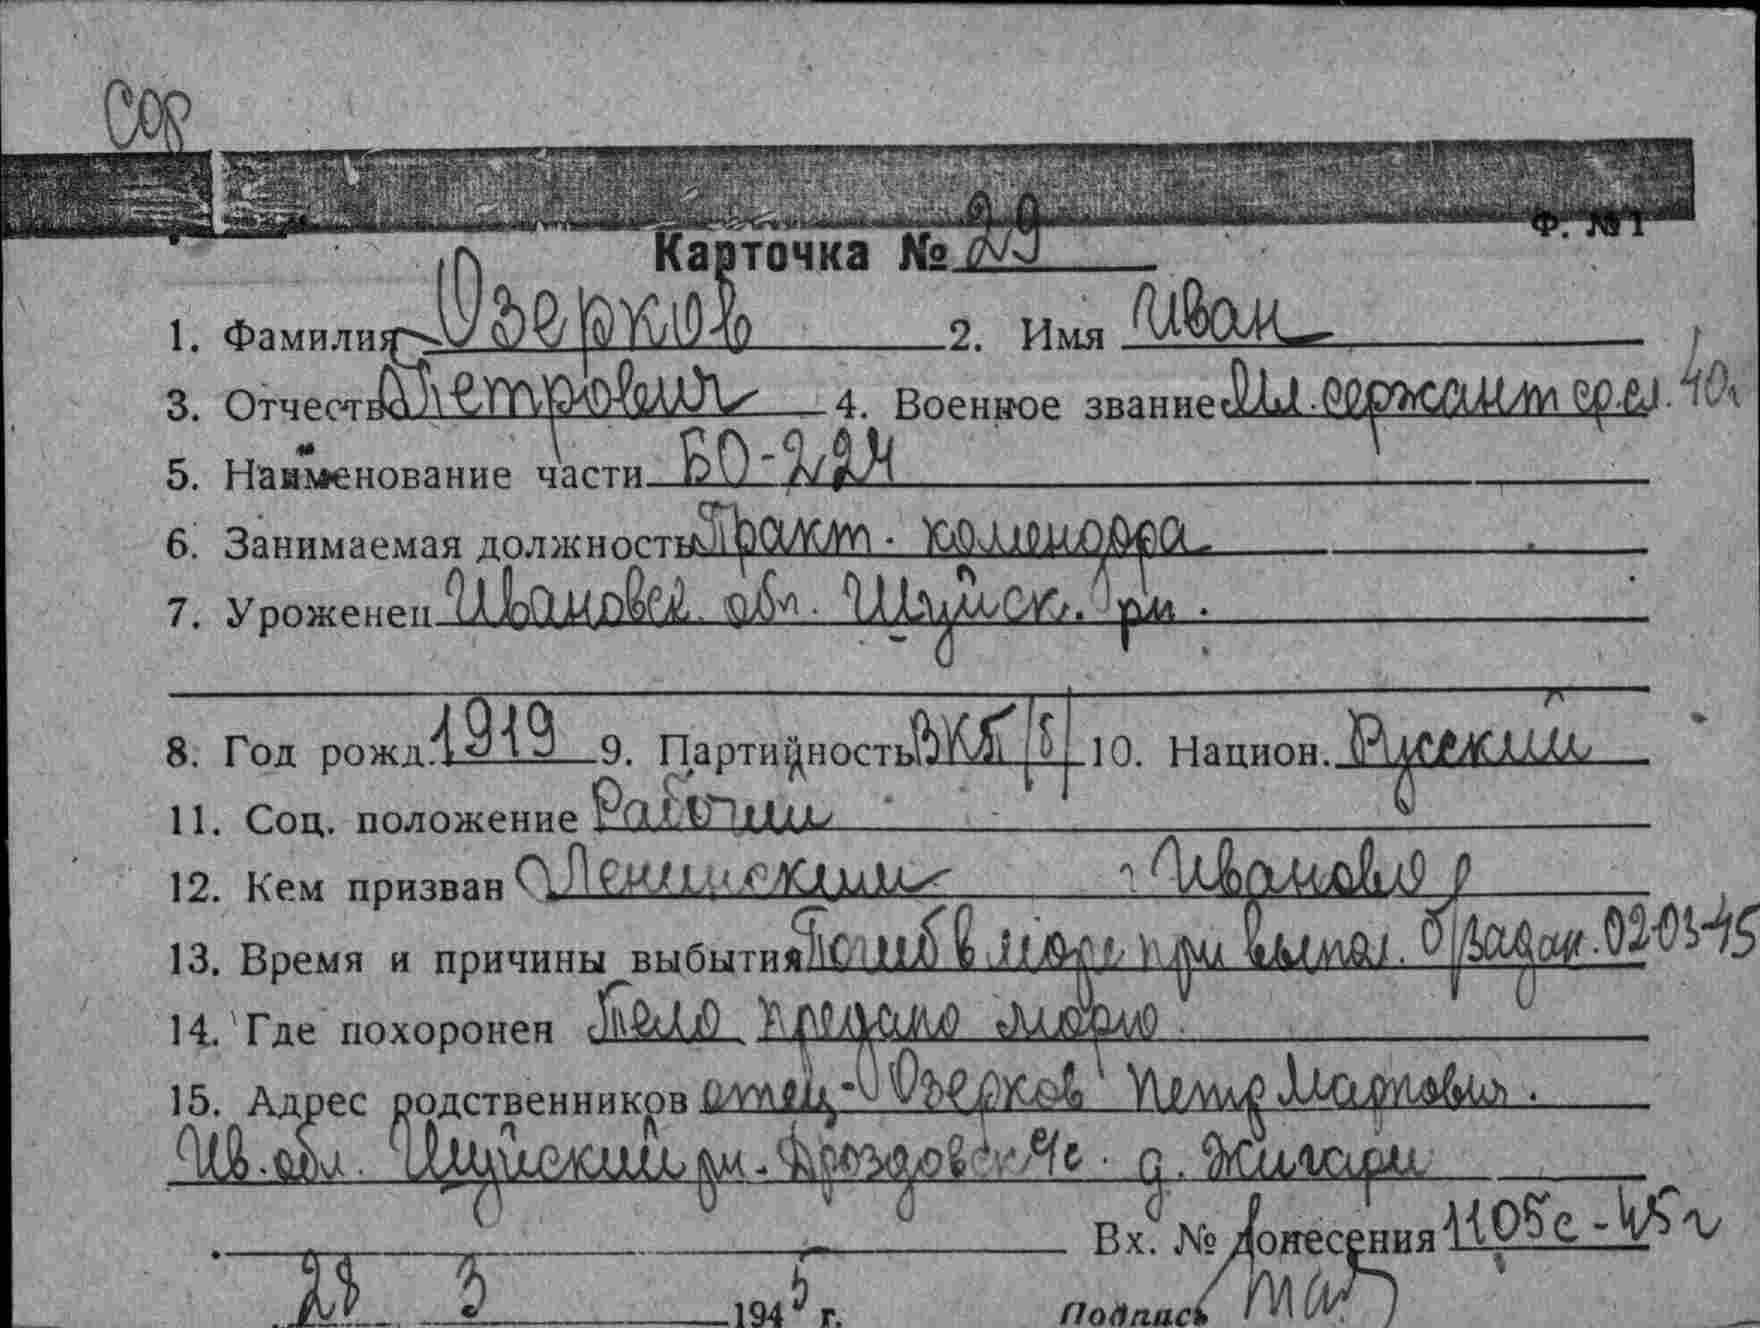 Ф. №1
Карточка № 29
1. Фамилия Озерков 2. Имя Иван
3. Отчество Петрович 4. Военное звание Мл. сержант ср.сл. 40г
5. Наименование части БО-224
6. Занимаемая должность Практ. комендора
7. Уроженец Ивановск. обл. Шуйск. рн.
8. Год рожд. 1919 9. Партийность ВКП/б/ 10. Национ. Русский
11. Соц. положение Рабочий
12. Кем призван Ленинским г Иваново
13. Время и причины выбытия Погиб в море при выпол. б/задан. 02-03-45
14. Где похоронен Тело предано морю
15. Адрес родственников отец - Озерков Петр
Ив. обл. Шуйский рн. д. Жигари
Вх. № донесения 1105с-45г
28 3 1945 г. Подпись